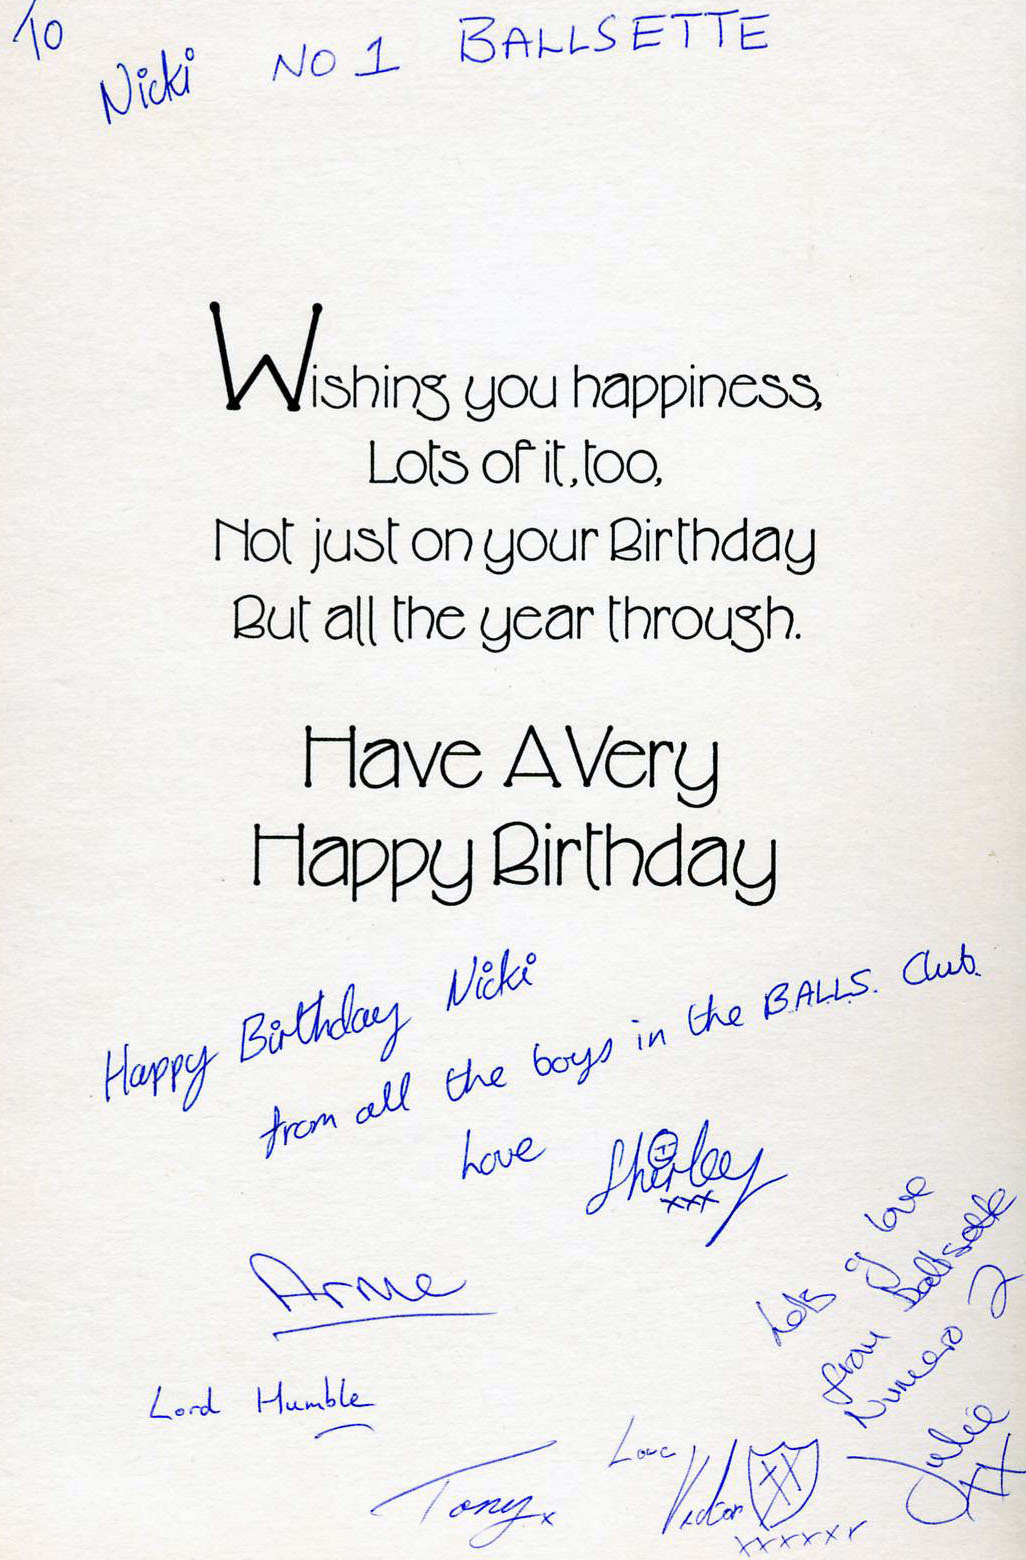 To
Nicki NO 1 BALLSETTE
Wishing you happiness,
Lots of it, too,
Not just on your Birthday
But all the year through.
Have A Very
Happy Birthday
Happy Birthday Nicki
from all the boys in the B.A.L.L.S. Club.
Love Shirley
xxx
Arne
Lord Humble
Tony x
Love
Victor XX
xxxxxx
Lots of love
from Ballsette
Numero 2
Julie
XX